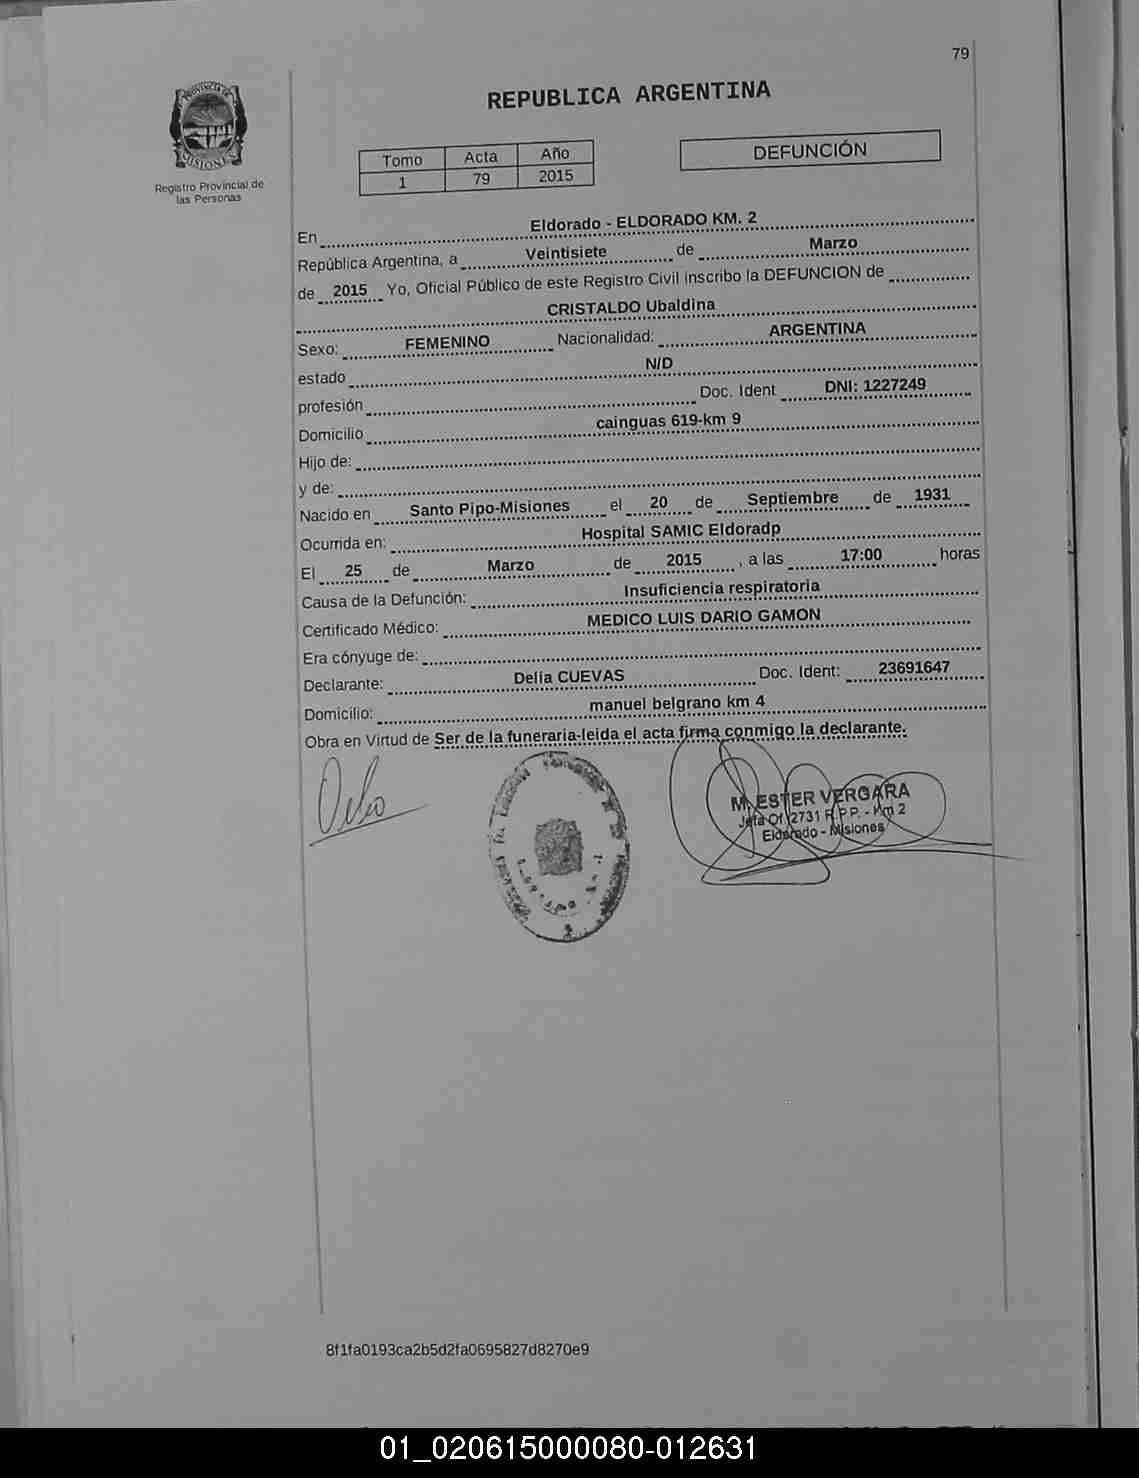 79
PROVINCIA DE
MISIONES
Registro Provincial de
las Personas
REPUBLICA ARGENTINA
Tomo Acta Año
1 79 2015
DEFUNCIÓN
En Eldorado - ELDORADO KM. 2
República Argentina, a Veintisiete de Marzo
de 2015 Yo, Oficial Público de este Registro Civil inscribo la DEFUNCION de
CRISTALDO Ubaldina
Sexo: FEMENINO Nacionalidad: ARGENTINA
estado N/D
profesión Doc. Ident DNI: 1227249
Domicilio cainguas 619-km 9
Hijo de:
y de:
Nacido en Santo Pipo-Misiones el 20 de Septiembre de 1931
Ocurrida en: Hospital SAMIC Eldoradp
El 25 de Marzo de 2015 , a las 17:00 horas
Causa de la Defunción: Insuficiencia respiratoria
Certificado Médico: MEDICO LUIS DARIO GAMON
Era cónyuge de:
Declarante: Delia CUEVAS Doc. Ident: 23691647
Domicilio: manuel belgrano km 4
Obra en Virtud de Ser de la funeraria-leida el acta firma conmigo la declarante.
M. ESTER VERGARA
Jefa Of. 2731 R.P.P. - Km 2
Eldorado - Misiones
8f1fa0193ca2b5d2fa0695827d8270e9
01_020615000080-012631